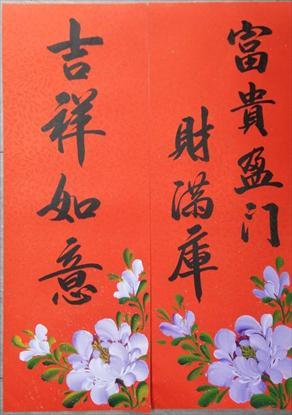 富貴盈门
財满庫
吉祥如意